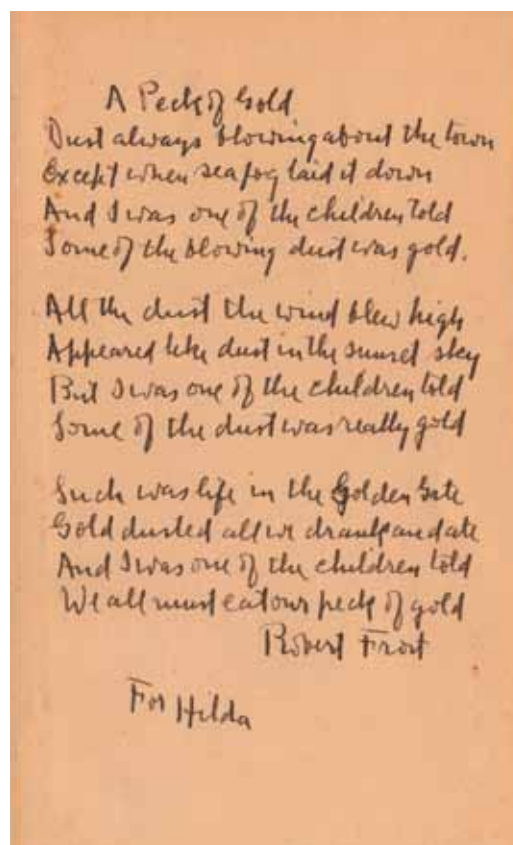 A Peck of Gold
Dust always blowing about the town
Except when sea fog laid it down
And I was one of the children told
Some of the blowing dust was gold.
All the dust the wind blew high
Appeared like dust in the sunset sky
But I was one of the children told
Some of the dust was really gold
Such was life in the Golden Gate
Gold dusted all we drank and ate
And I was one of the children told
We all must eat our peck of gold
Robert Frost
For Hilda